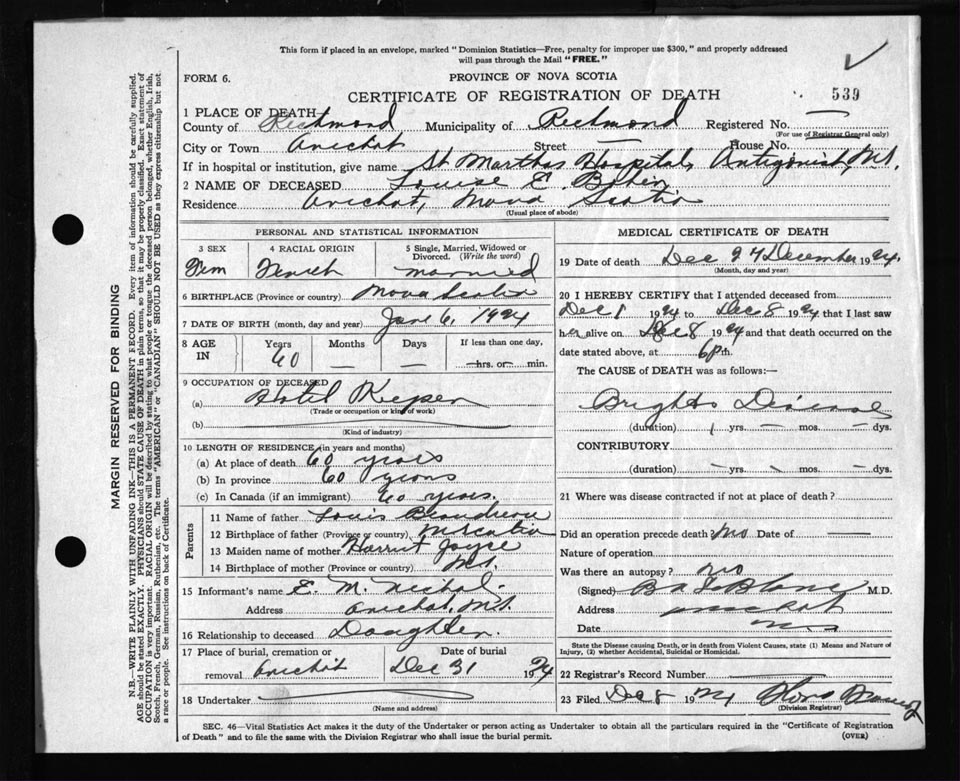 This form if placed in an envelope, marked "Dominion Statistics—Free, penalty for improper use $300," and properly addressed
will pass through the Mail "FREE."
FORM 6.
PROVINCE OF NOVA SCOTIA
CERTIFICATE OF REGISTRATION OF DEATH
539
1 PLACE OF DEATH
County of Richmond Municipality of Richmond Registered No. —
(For use of Registrar General only)
City or Town Arichat Street — House No.
If in hospital or institution, give name St Marthas Hospital, Antigonish, N.S.
2 NAME OF DECEASED Louise E.
Residence Arichat, Nova Scotia
(Usual place of abode)
PERSONAL AND STATISTICAL INFORMATION
3 SEX 4 RACIAL ORIGIN 5 Single, Married, Widowed or Divorced. (Write the word)
Fem French married
6 BIRTHPLACE (Province or country) Nova Scotia
7 DATE OF BIRTH (month, day and year) 6, 1924
8 AGE IN Years Months Days If less than one day,
60 — — hrs. or min.
9 OCCUPATION OF DECEASED
(a) Hotel Keeper
(Trade or occupation or kind of work)
(b)
(Kind of industry)
10 LENGTH OF RESIDENCE (in years and months)
(a) At place of death 60 years
(b) In province 60 years
(c) In Canada (if an immigrant) 60 years.
Parents
11 Name of father Louis
12 Birthplace of father (Province or country) N Scotia
13 Maiden name of mother Harriet Joyce
14 Birthplace of mother (Province or country) N.S.
15 Informant's name E. M.
Address Arichat, N.S.
16 Relationship to deceased Daughter.
17 Place of burial, cremation or removal Date of burial
Arichat Dec 31 1924
18 Undertaker
(Name and address)
MEDICAL CERTIFICATE OF DEATH
19 Date of death Dec 24 December 1924.
(Month, day and year)
20 I HEREBY CERTIFY that I attended deceased from
Dec 1 1924 to Dec 8 1924 that I last saw
her alive on Dec 8 1924 and that death occurred on
date stated above, at 6 p m.
The CAUSE of DEATH was as follows:—
Brights Disease
(duration) 1 yrs. — mos. — dys.
CONTRIBUTORY.
(duration) — yrs. — mos. — dys.
21 Where was disease contracted if not at place of death?
Did an operation precede death? No Date of —
Nature of operation
Was there an autopsy? no
(Signed) B A LeBlanc M.D.
Address Arichat
Date
State the Disease causing Death, or in death from Violent Causes, state (1) Means and Nature of
Injury, (2) whether Accidental, Suicidal or Homicidal.
22 Registrar's Record Number
23 Filed Dec 8 1924
(Division Registrar)
SEC. 46—Vital Statistics Act makes it the duty of the Undertaker or person acting as Undertaker to obtain all the particulars required in the "Certificate of Registration
of Death" and to file the same with the Division Registrar who shall issue the burial permit.
(OVER)
MARGIN RESERVED FOR BINDING
N.B.—WRITE PLAINLY, WITH UNFADING INK—THIS IS A PERMANENT RECORD. Every item of information should be carefully supplied.
AGE should be stated EXACTLY. PHYSICIANS should STATE CAUSE OF DEATH in plain terms, so that it may be properly classified. Exact statement of
OCCUPATION is very important. RACIAL ORIGIN will be described by stating to what people or tongue the deceased person belonged, whether English, Irish,
Scotch, French, German, Russian, Ruthenian, etc. The terms "AMERICAN" or "CANADIAN" SHOULD NOT BE USED as they express citizenship but not
a race or people. See instructions on back of Certificate.